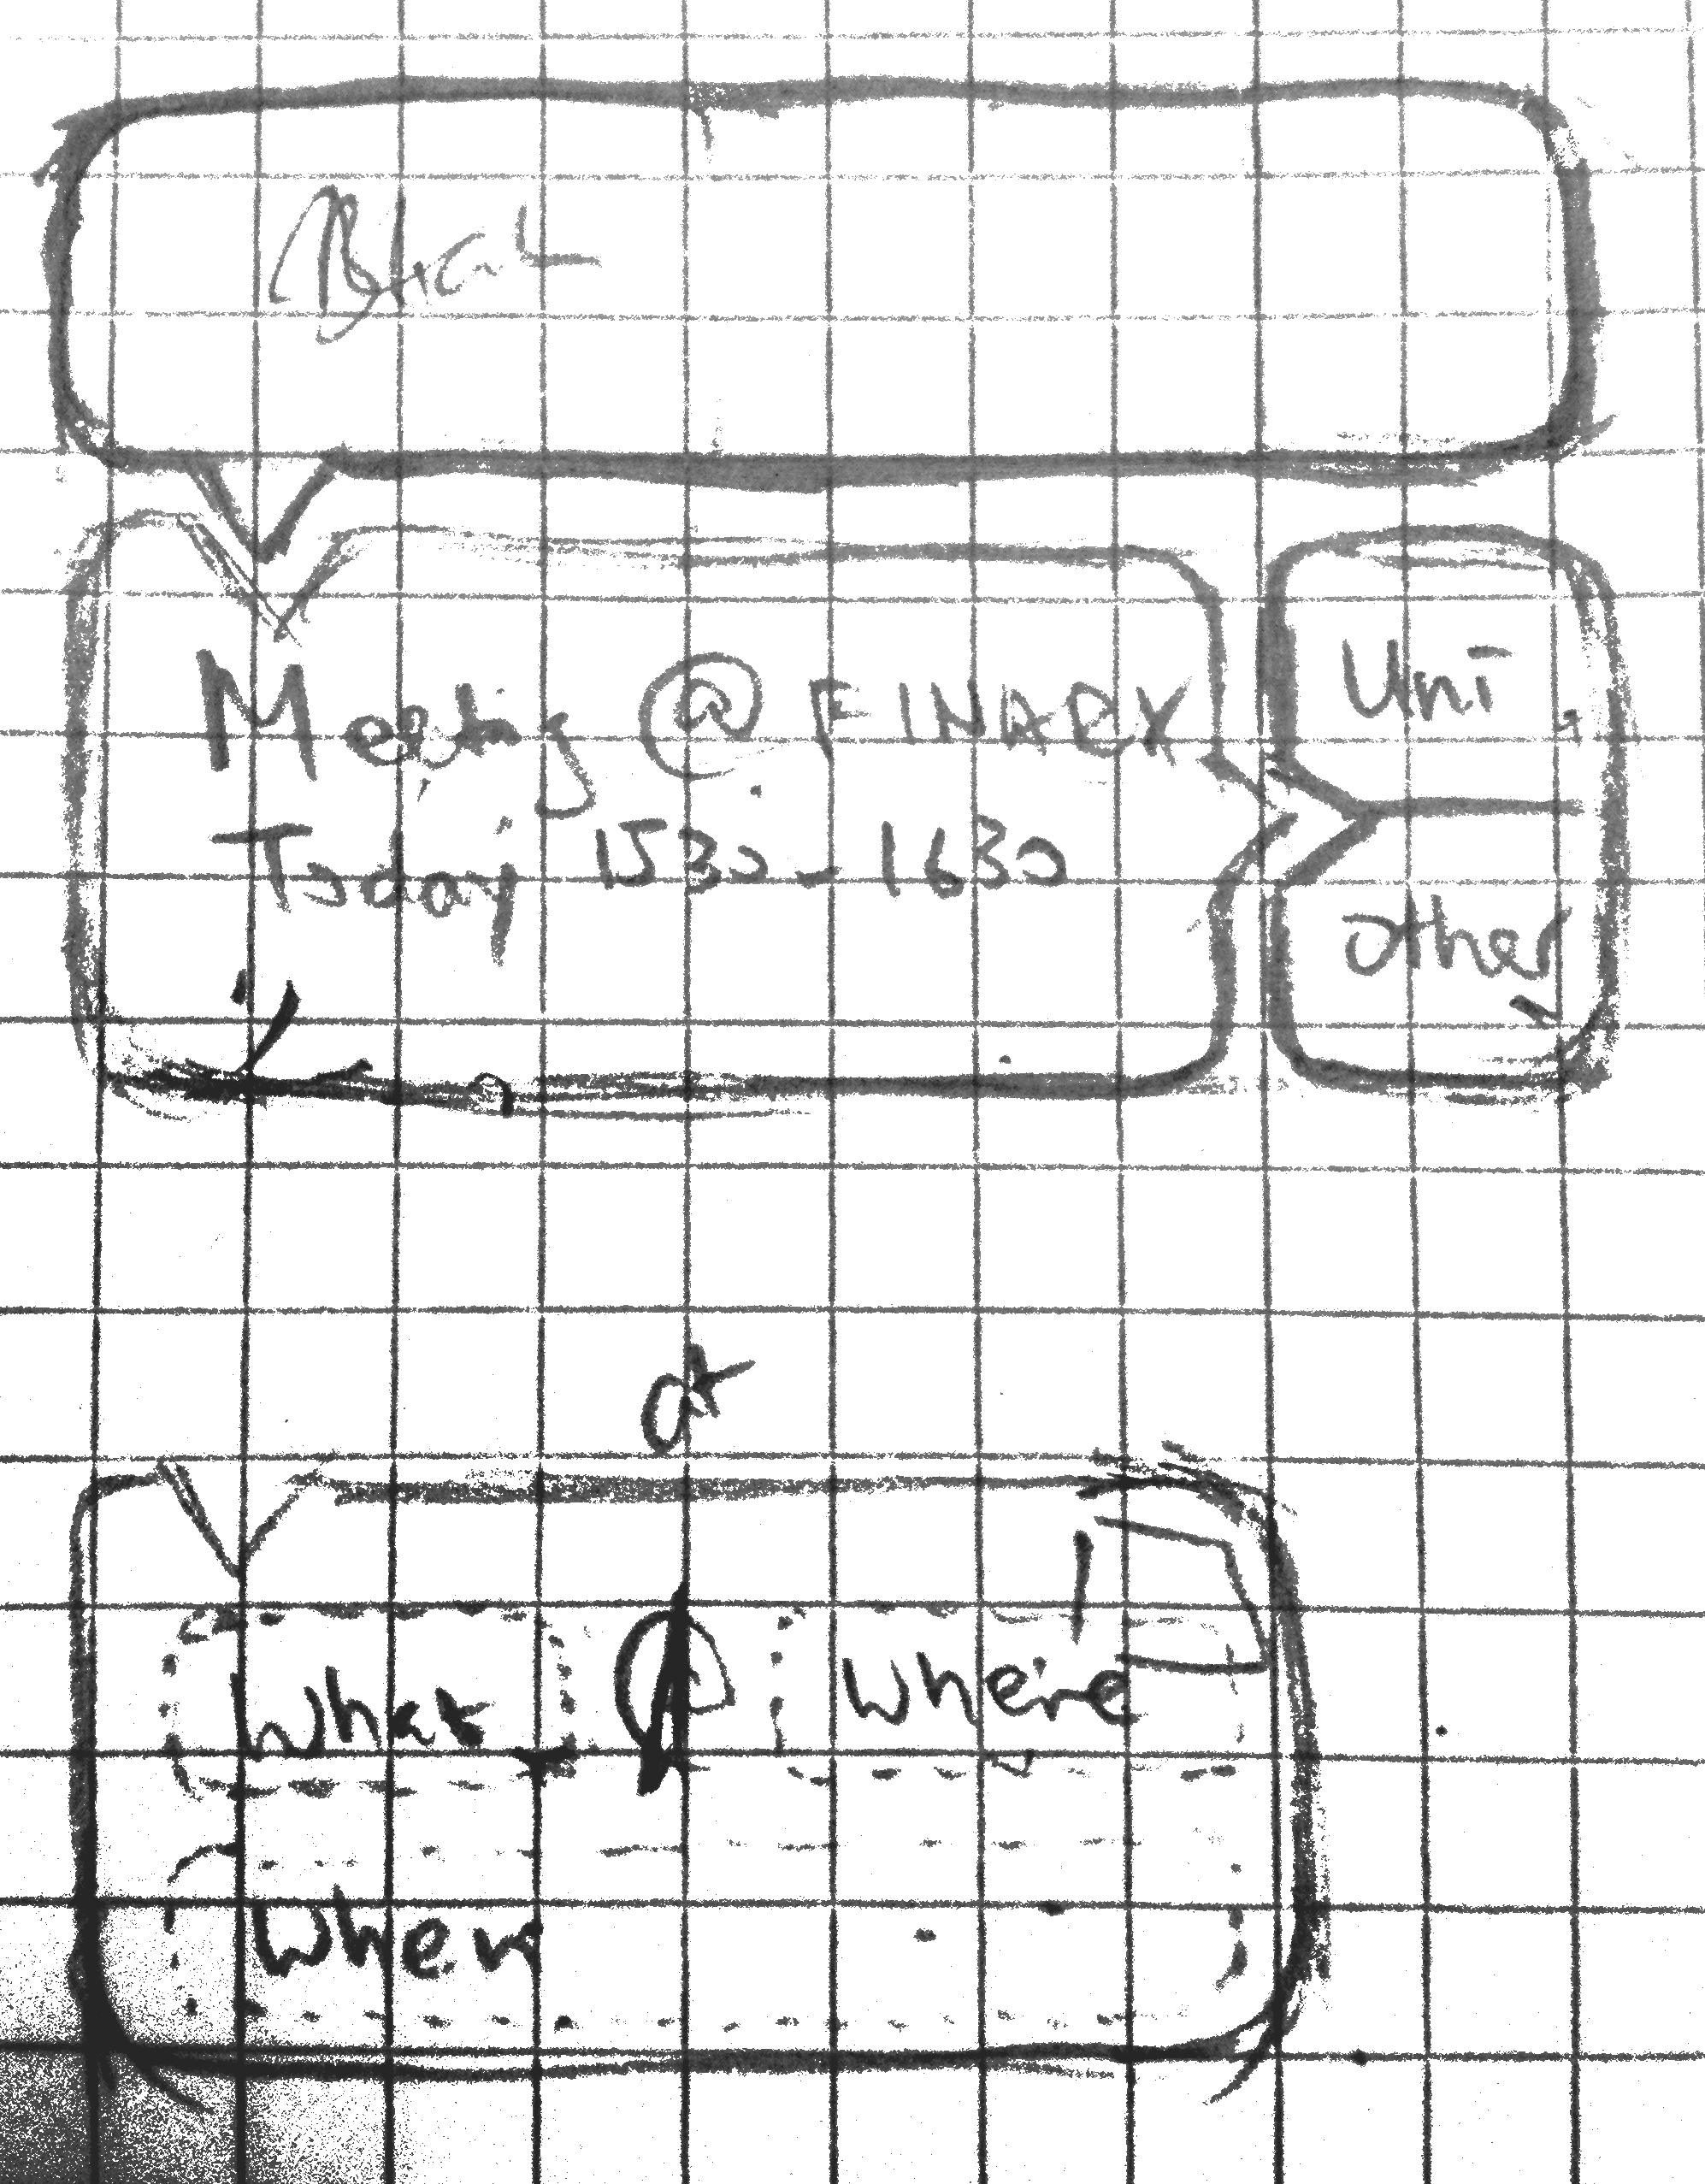 Meeting @ FINARX
Today 1530 - 1630
Uni
other
at
What @ Where
When